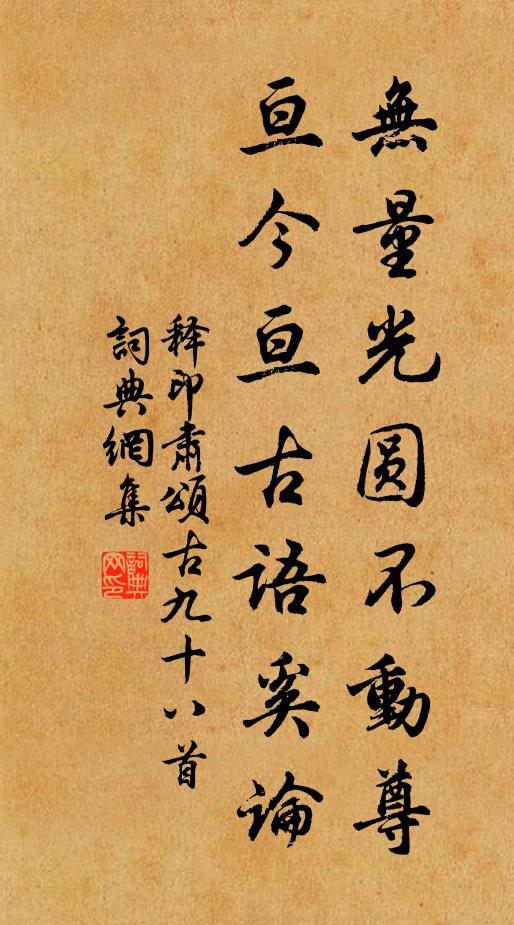 無量光圓不動尊
亘今亘古語奚論
释印肅頌古九十八首
詞典網集
詞典網印